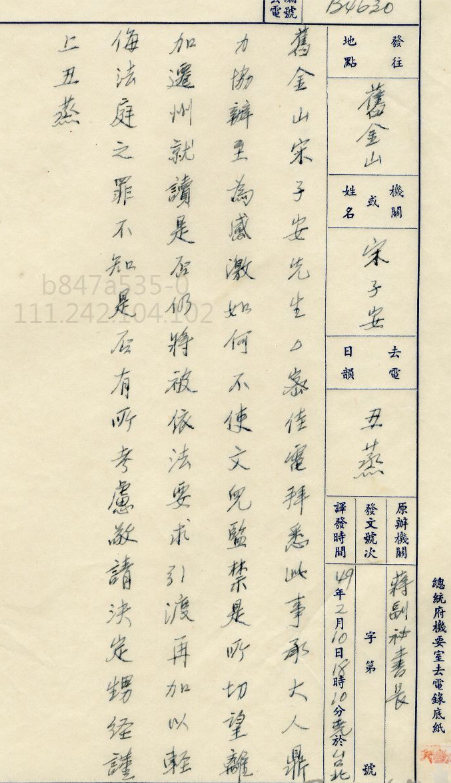 去電
編號
B4630
發往
地點
舊金山
機關
或
姓名
宋子安
去電
日韻
丑蒸
原辦機關
蔣副祕書長
發文號次
字第 號
譯發時間
49年2月10日18時10分 於台北
總統府機要室去電錄底紙
舊金山宋子安先生 密佳電拜悉此事承大人鼎
力協辦至為感激如何不使文兒監禁是所切望離
加遷州就讀是否仍將被依法要求引渡再加以輕
侮法庭之罪不知是否有所考慮敬請決定甥經謹
上丑蒸
b847a535-0
111.242.104.102